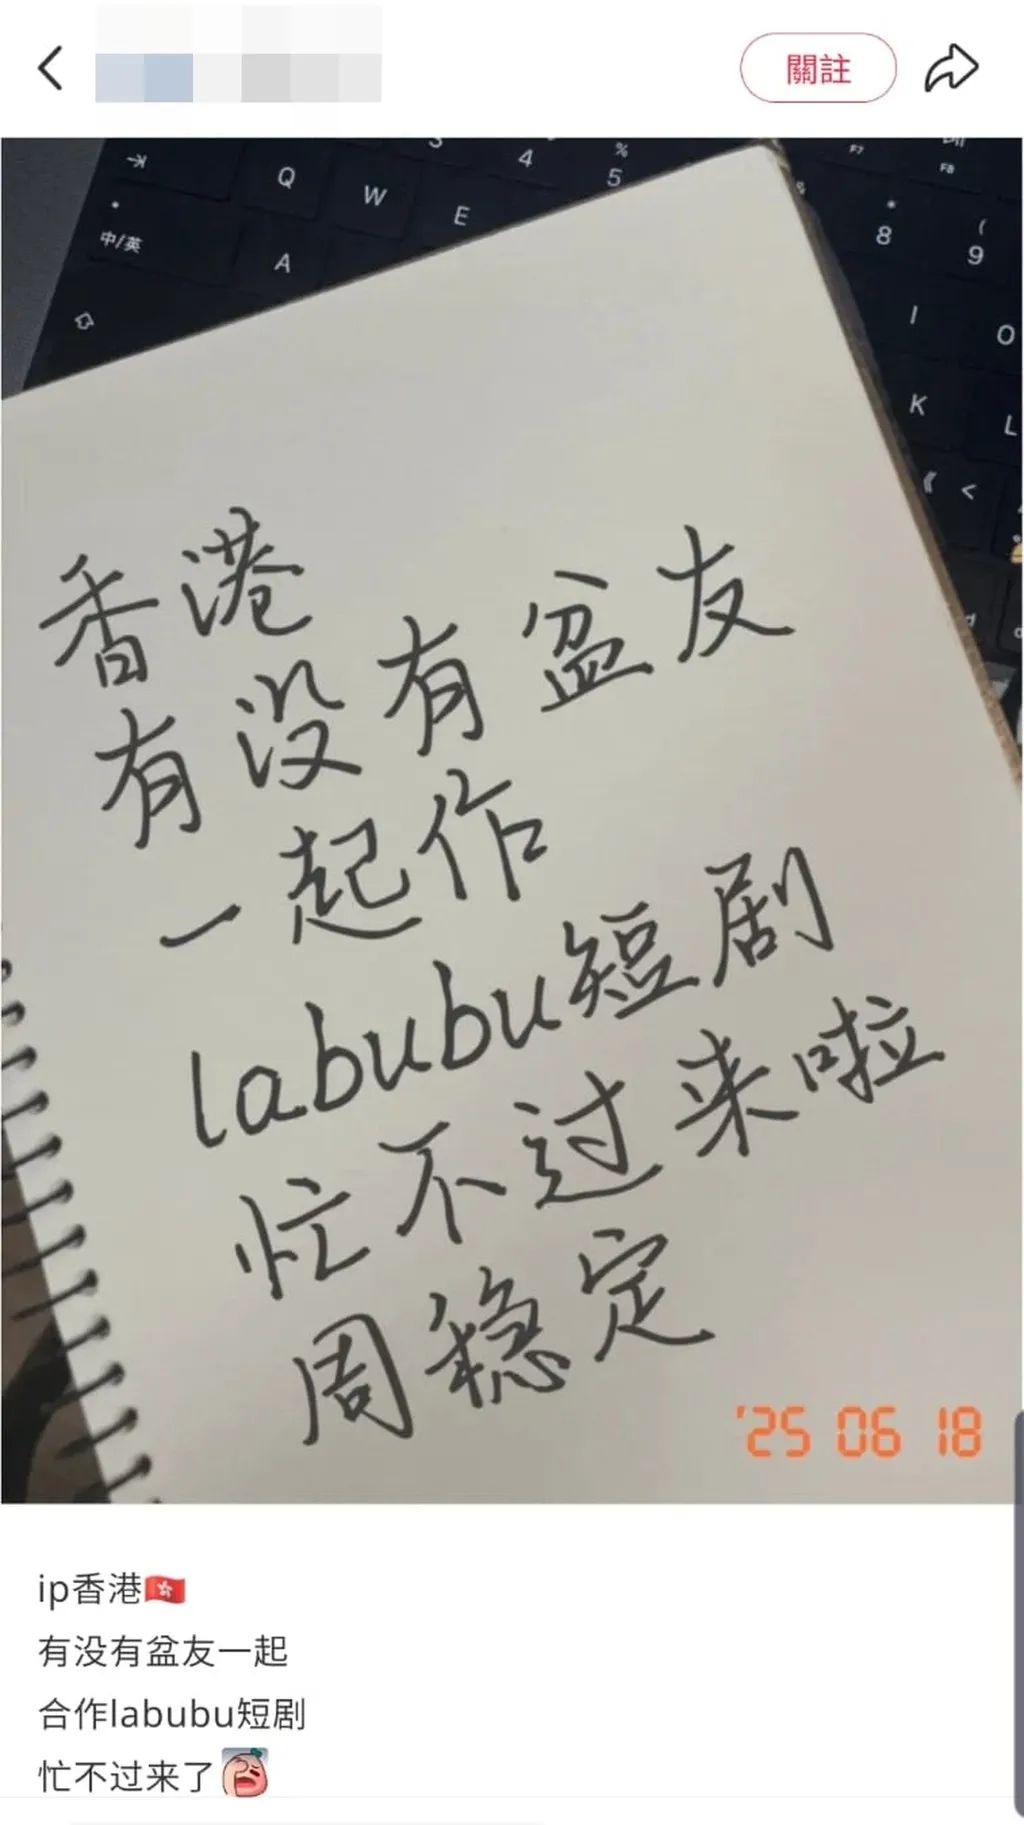 關註
Q W E 4 % 5 F7 F8
中/英 A * 8 ( 9
I O
K L
《 <
香港
有没有盆友
一起作
labubu短剧
忙不过来啦
周稳定
'25 06 18
ip香港🇭🇰
有没有盆友一起
合作labubu短剧
忙不过来了